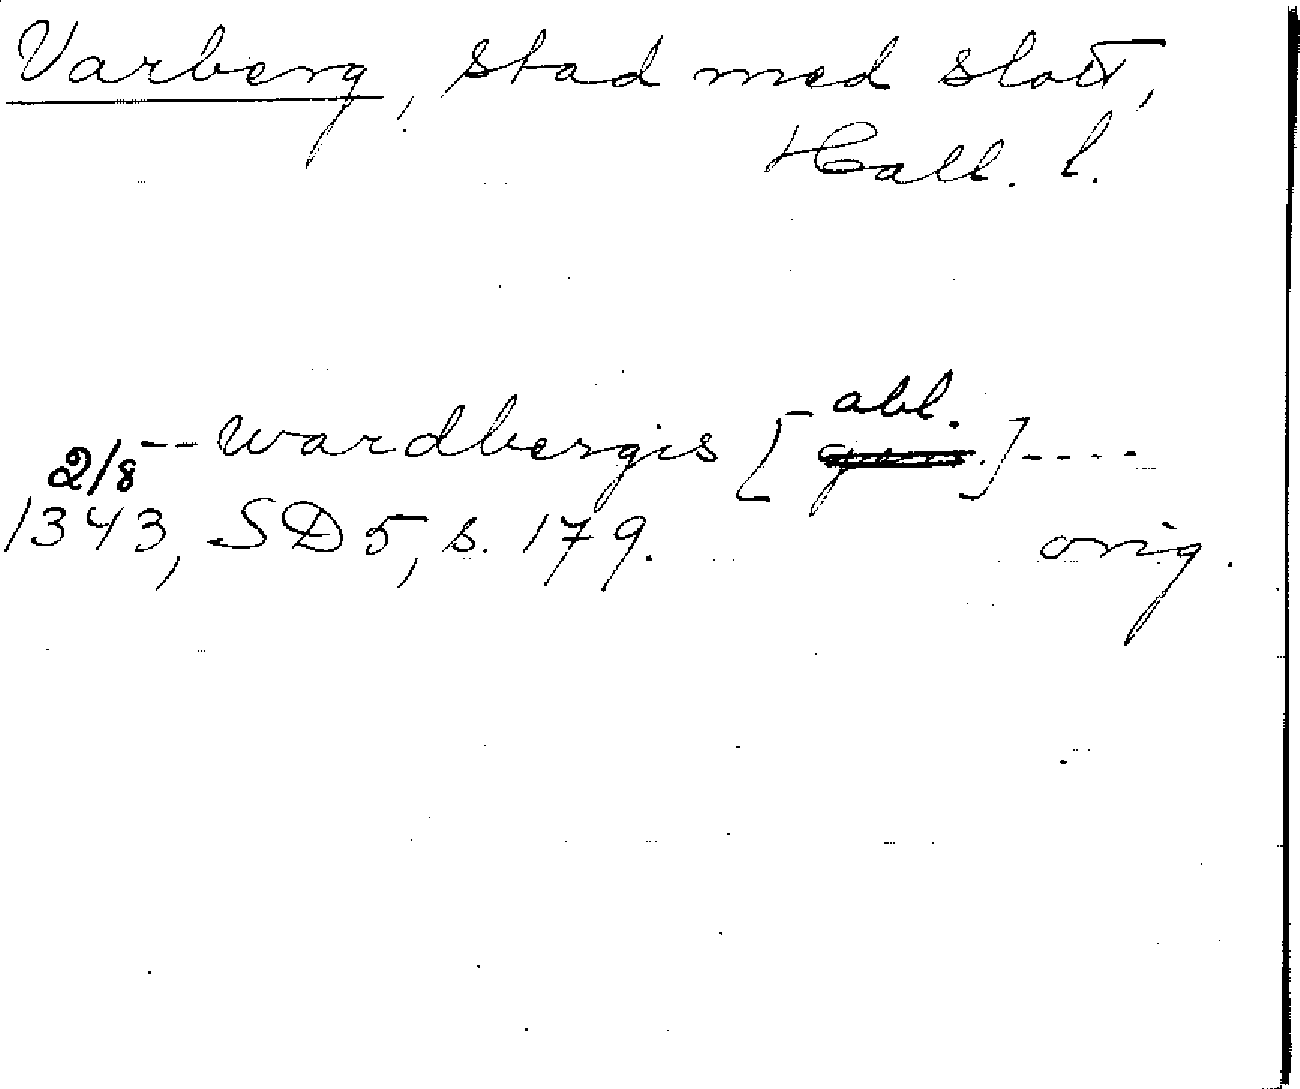 Varberg, stad med slott,
Hall. l.
-- wardbergis [abl.] ----
2/8
1343, SD 5, s. 179. orig.